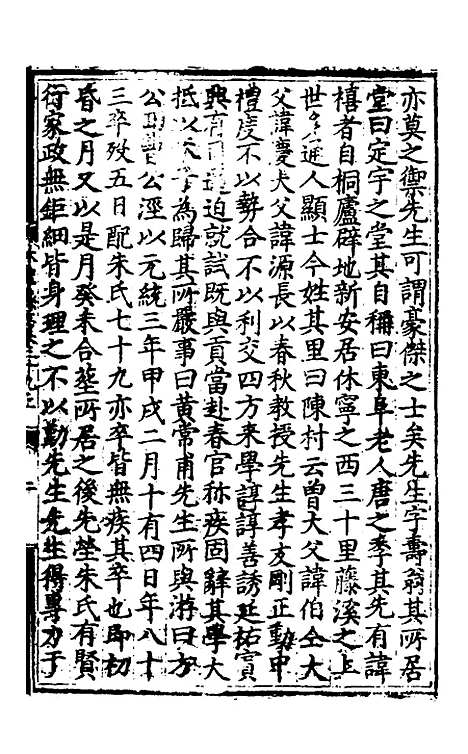 亦莫之禦先生可謂豪傑之士矣先生字壽翁其所居
堂曰定宇之堂其自稱曰東阜老人唐之季其先有諱
禧者自桐廬辟地新安居休寧之西三十里藤溪之上
世多通人顯士今姓其里曰陳村云曾大父諱伯全大
父諱慶大父諱源長以春秋教授先生孝友剛正動中
禮度不以勢合不以利交四方來學諄諄善誘延祐賓
興有司迫就試既與貢當赴春官称疾固辭其學大
抵以朱子為歸其所嚴事曰黄常甫先生所與游曰方
公公涇以元統三年甲戌二月十有四日年八十
三卒歿五日配朱氏七十九亦卒皆無疾其卒也即初
昏之月又以是月癸未合塟所居之後先塋朱氏有賢
行家政無鉅細皆身理之不以勤先生先生得專力于